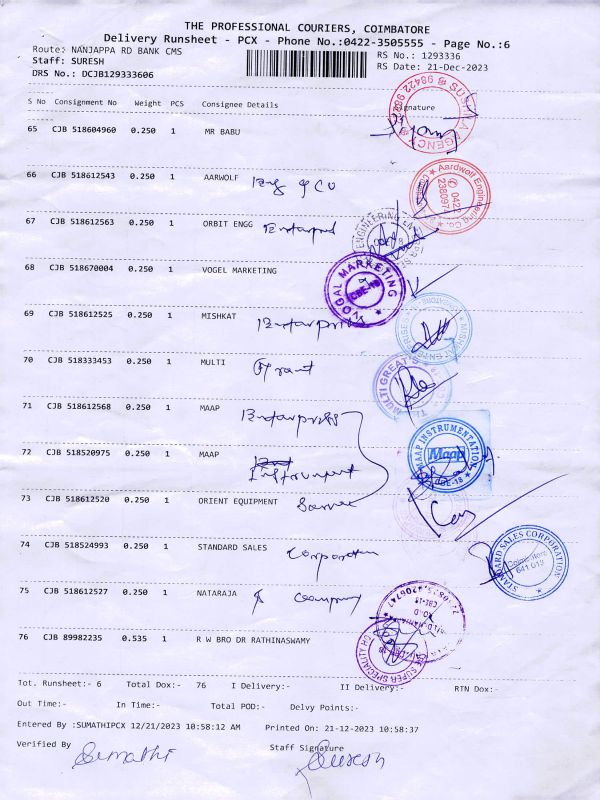 THE PROFESSIONAL COURIERS, COIMBATORE
Delivery Runsheet - PCX - Phone No.:0422-3505555 - Page No.:6
Route: NANJAPPA RD BANK CMS RS No.: 1293336
Staff: SURESH RS Date: 21-Dec-2023
DRS No.: DCJB129333606
S No Consignment No Weight PCS Consignee Details Signature
65 CJB 518604960 0.250 1 MR BABU
66 CJB 518612543 0.250 1 AARWOLF Eng
Aardwolf Engineering
67 CJB 518612563 0.250 1 ORBIT ENGG Enterprises
68 CJB 518670004 0.250 1 VOGEL MARKETING
VOGAL MARKETING
CBE-18
69 CJB 518612525 0.250 1 MISHKAT Enterprises
70 CJB 518333453 0.250 1 MULTI
MULTI GREAT
71 CJB 518612568 0.250 1 MAAP Enterprises
72 CJB 518520975 0.250 1 MAAP Instrument
MAAP INSTRUMENTATION
Maap
CBE-18
73 CJB 518612520 0.250 1 ORIENT EQUIPMENT
74 CJB 518524993 0.250 1 STANDARD SALES Corporation
STANDARD SALES CORPORATION
Coimbatore
641 018
75 CJB 518612527 0.250 1 NATARAJA & Company
76 CJB 89982235 0.535 1 R W BRO DR RATHINASWAMY
SUPER SPECIALITY
Tot. Runsheet:- 6 Total Dox:- 76 I Delivery:- II Delivery:- RTN Dox:-
Out Time:- In Time:- Total POD:- Delvy Points:-
Entered By :SUMATHIPCX 12/21/2023 10:58:12 AM Printed On: 21-12-2023 10:58:37
Verified By Sumathi Staff Signature Suresh